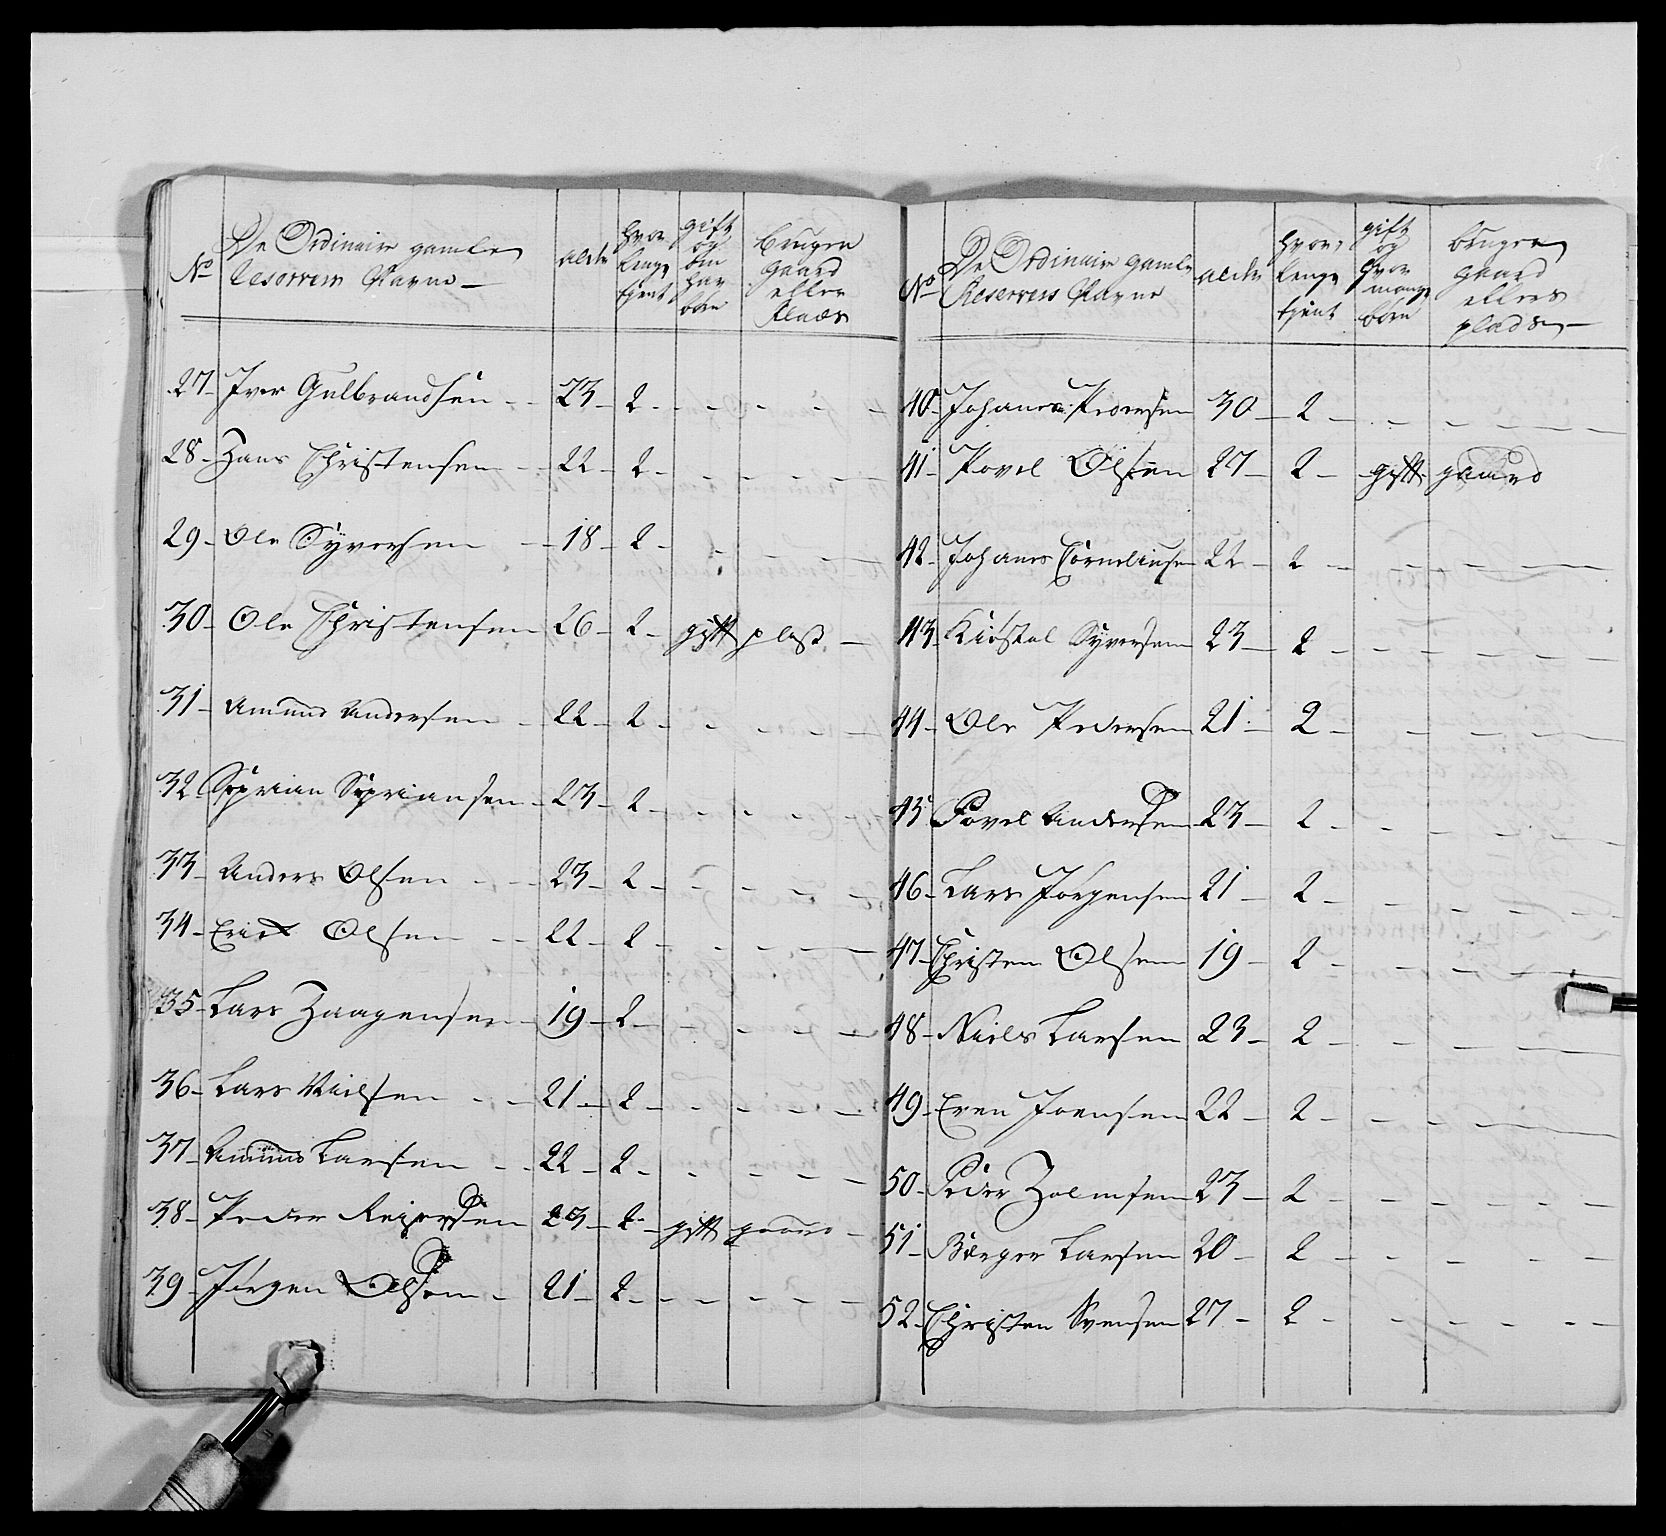 No
De Ordinaire gamle
Reserven Navne
alder
hvor
lenge
tient
gift
og
om
har
børn
bruger
gaard
eller
Plads
27 Iver Gulbrandsen 23 2
28 Hans Christensen 22 2
29 Ole Syversen 18 2
30 Ole Christensen 26 2 gift plass
31 Amund Andersen 22 2
32 Syprian Sypriansen 23 2
33 Anders Olsen 23 2
34 Erick Olsen 22 2
35 Lars Haagensen 19 2
36 Lars Nielsen 21 2
37 Amund Larsen 22 2
38 Peder Reiersen 23 2 gift gaard
39 Jørgen Olsen 21 2
No
De Ordinaire gamle
Reservens Navne
alder
hvor
lenge
tient
gift
og
hvor
mange
børn
bruger
gaard
ellers
plads
40 Johanes Pedersen 30 2
41 Povel Olsen 27 2 gift gaard
42 Johanes Corneliusen 22 2
43 Kiøstel Syversen 23 2
44 Ole Pedersen 21 2
45 Povel Andersen 23 2
46 Lars Jørgensen 21 2
47 Christen Olsen 19 2
48 Niels Larsen 23 2
49 Even Joensen 22 2
50 Peder Holmsen 23 2
51 Børger Larsen 20 2
52 Christen Svensen 27 2